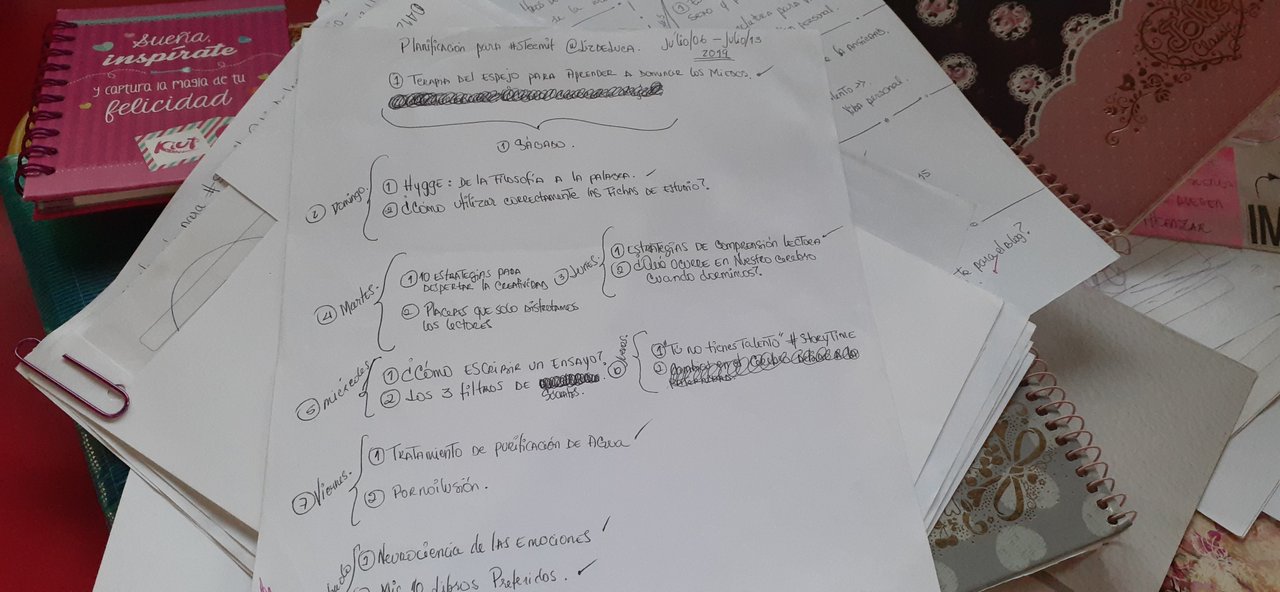 Sueña,
inspírate
y captura la magia de tu
felicidad
KIUT
Planificación para #Steemit @lizdeluca. Julio/06 – Julio/13
2019
① Terapia del espejo para Aprender a Dominar los Miedos. ✓
① Sábado.
② Domingo.
① Hygge: De la Filosofía a la palabra. ✓
② ¿Cómo utilizar correctamente las fichas de estudio?.
③ Lunes.
① Estrategias de comprensión lectora ✓
② ¿Qué ocurre en nuestro cerebro
cuando dormimos?.
④ Martes.
① 10 estrategias para
despertar la creatividad
② Placeres que solo disfrutamos
los lectores
⑤ miércoles
① ¿Cómo escribir un ensayo?.
② Los 3 filtros de
Sócrates.
⑥ Jueves.
① "Tú no tienes Talento" #StoryTime
②
⑦ Viernes.
① Tratamiento de purificación de Agua ✓
② Pornoilusión.
① Neurociencia de las Emociones ✓
Mis 10 Libros Preferidos. ✓
personal.
15
para el blog?
Jolie
Classic
ALCANZAR
IM